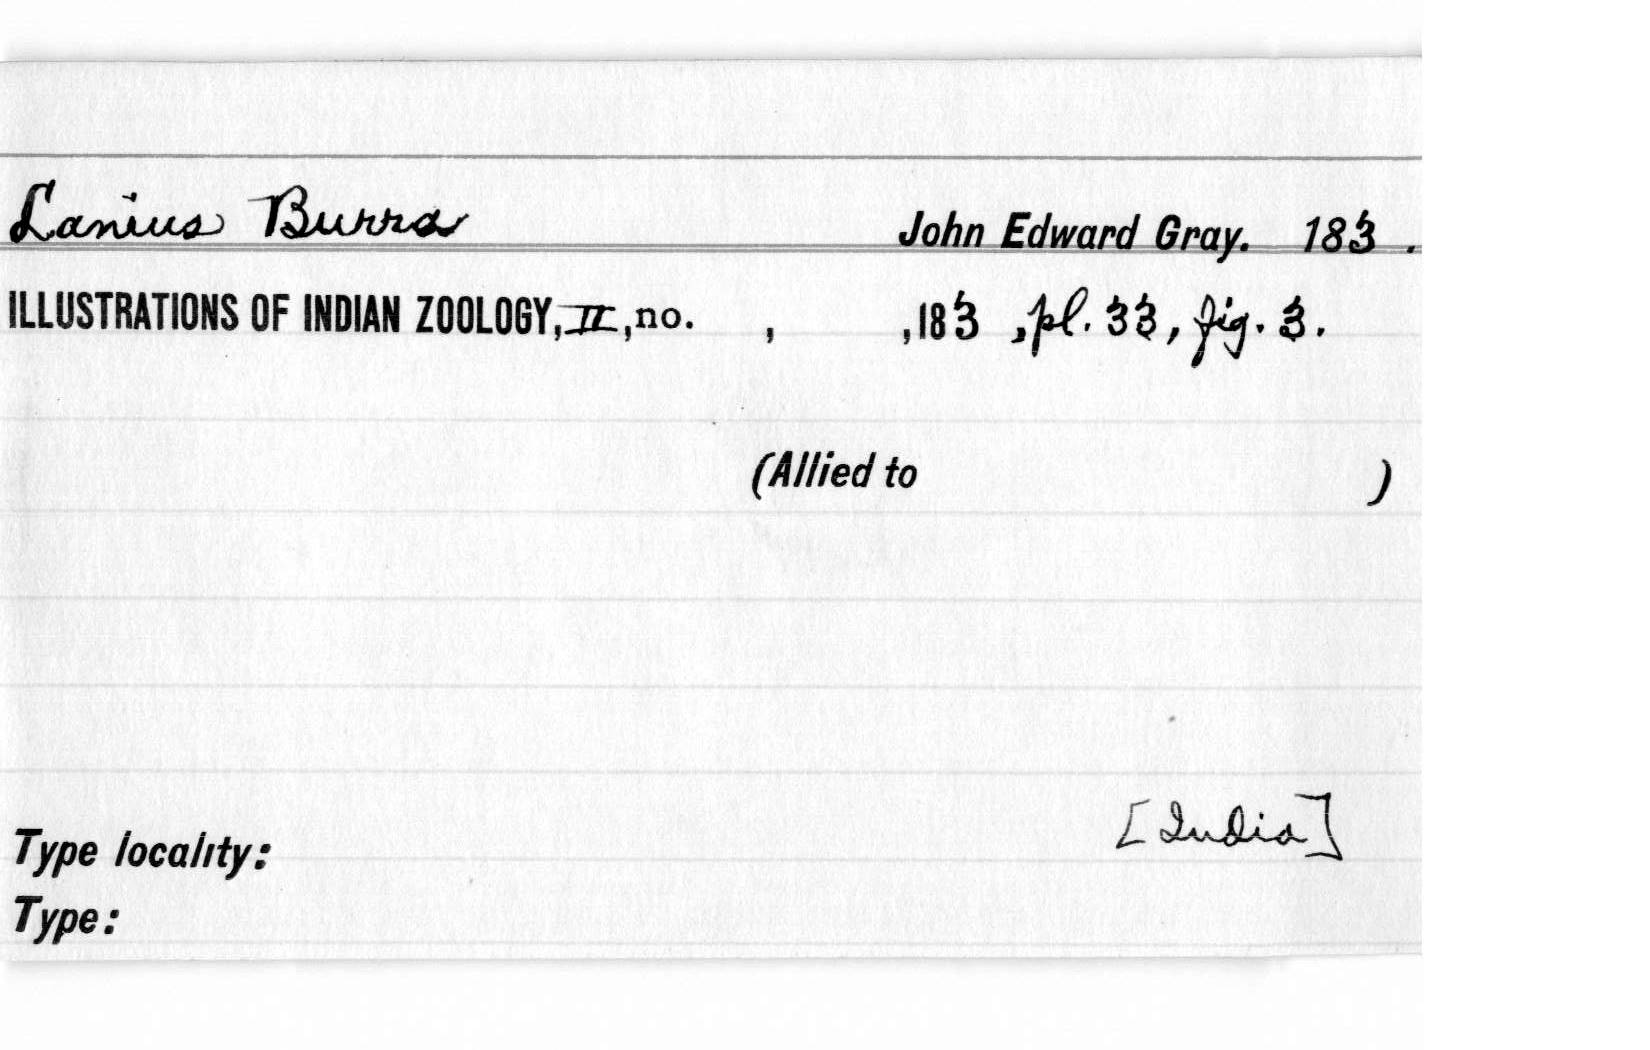 Lanius Burra John Edward Gray. 183 .
ILLUSTRATIONS OF INDIAN ZOOLOGY, II, no. , ,183 ,pl. 33, fig. 3.
(Allied to )
[India]
Type locality:
Type: